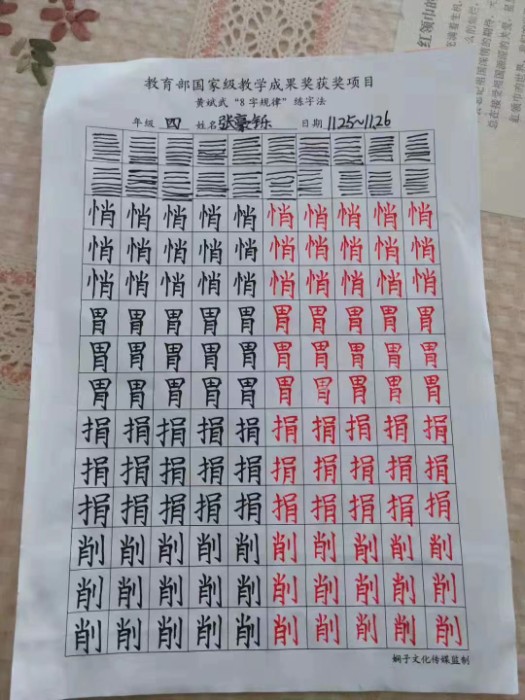 教育部国家级教学成果奖获奖项目
黄斌武“8字规律”练字法
年级 四 姓名 张豪铄 日期 11.25~11.26
悄悄悄悄悄悄悄悄悄悄
悄悄悄悄悄悄悄悄悄悄
悄悄悄悄悄悄悄悄悄悄
胃胃胃胃胃胃胃胃胃胃
胃胃胃胃胃胃胃胃胃胃
胃胃胃胃胃胃胃胃胃胃
捐捐捐捐捐捐捐捐捐捐
捐捐捐捐捐捐捐捐捐捐
捐捐捐捐捐捐捐捐捐捐
削削削削削削削削削削
削削削削削削削削削削
削削削削削削削削削削
娴子文化传媒监制
红领巾的